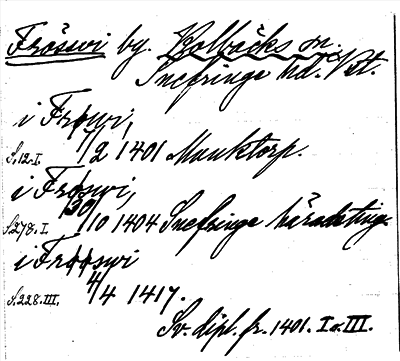 Fröswi by. Kolbäcks sn.
Snefringe hd. Vst.
i Frøswi,
S.12.I. 17/2 1401 Munktorp.
i Frøswi,
S.278.I. 30/10 1404 Snefringe häradsting.
i Frøøswi
S.228.III. 4/4 1417.
Sv. dipl. fr. 1401. I o. III.